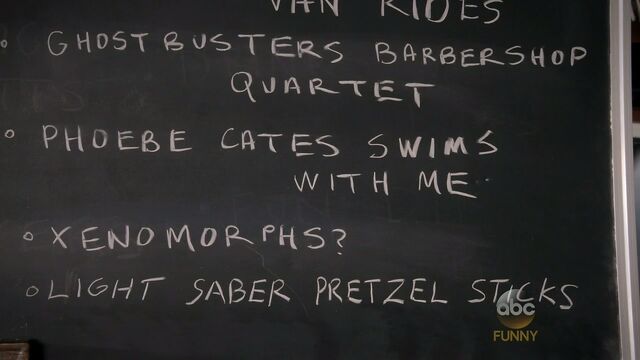 VAN RIDES
GHOSTBUSTERS BARBERSHOP
QUARTET
PHOEBE CATES SWIMS
WITH ME
XENOMORPHS?
LIGHT SABER PRETZEL STICKS
abc
FUNNY